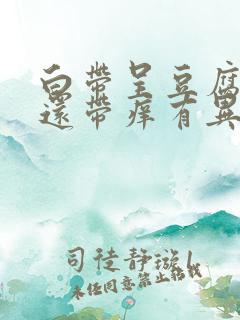 白带呈豆腐
还带痒有异
司徒静璇1
未经同意禁止转载